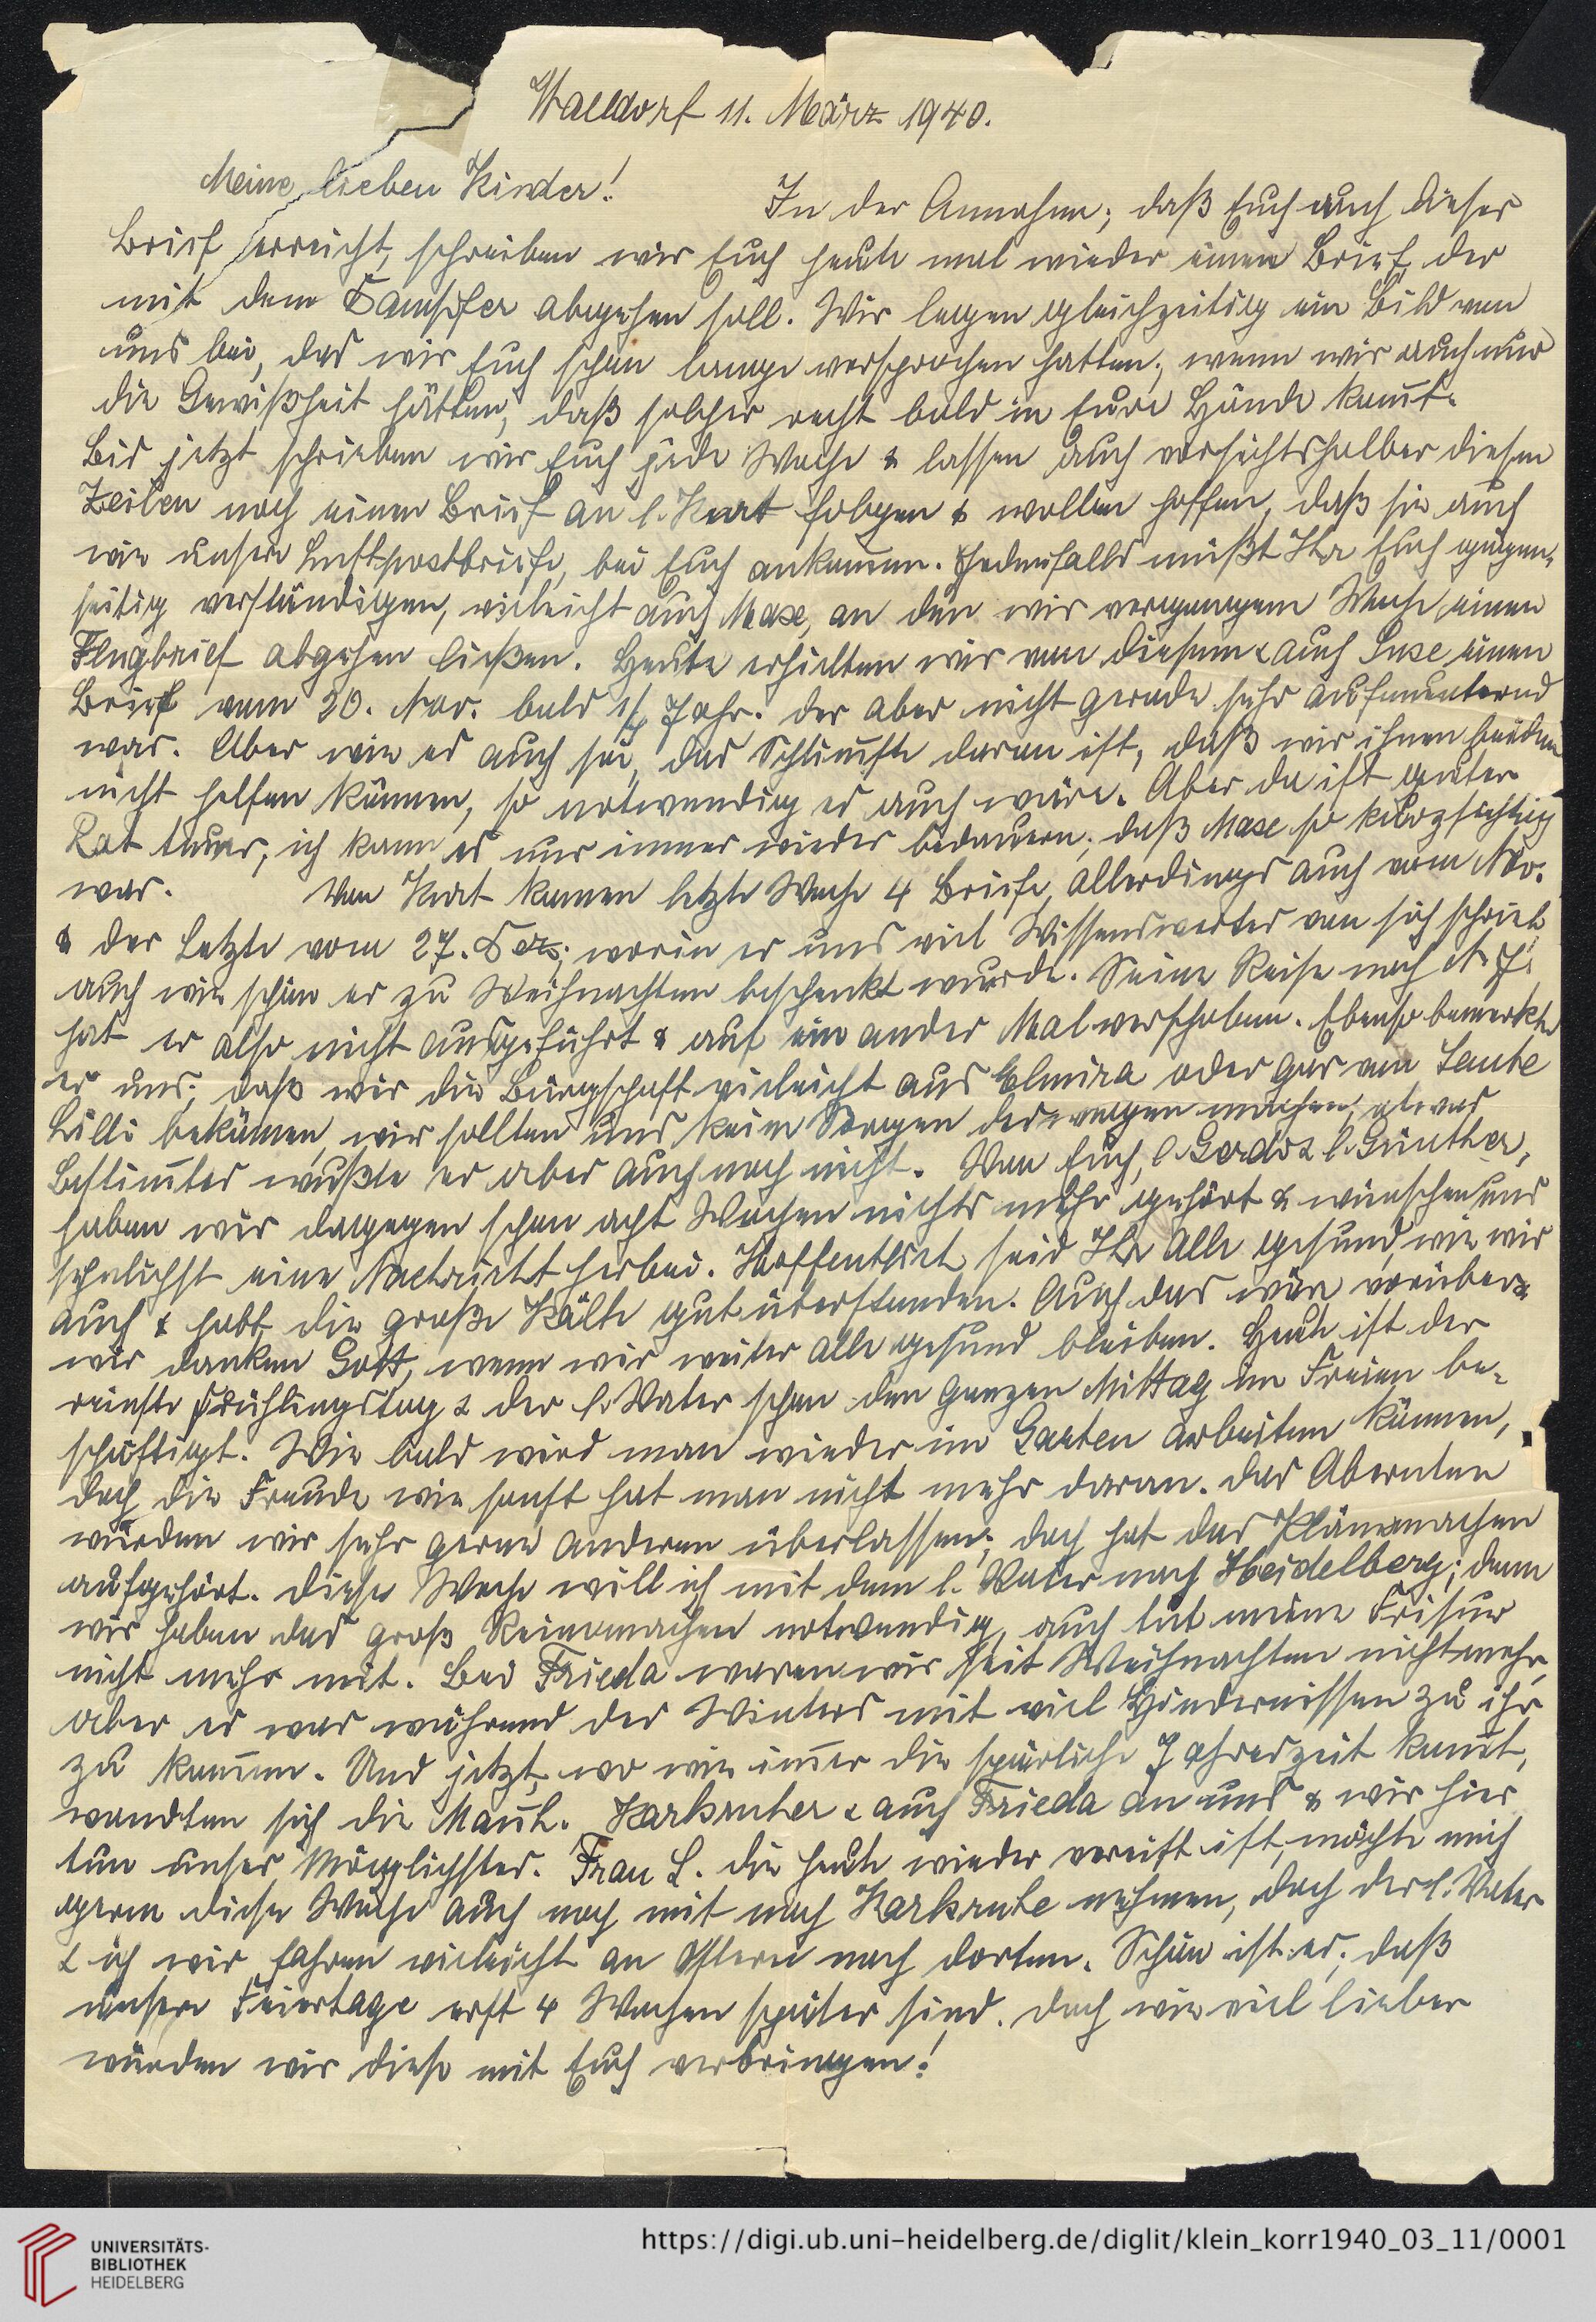 Walldorf 11. März 1940.
Meine lieben Kinder!
In der Annahme, daß Euch auch dieser
Brief erreicht, schreiben wir Euch heute mal wieder einen Brief, der
mit dem Dampfer abgehen soll. Wir legen gleichzeitig ein Bild von
uns bei, das wir Euch schon lange versprochen hatten, wenn wir auch nur
die Gewißheit hätten, daß solcher recht bald in Eure Hände kom̅t.
Bis jetzt schrieben wir Euch jede Woche & lassen auch vorsichtshalber diesen
Zeilen noch einen Brief an l. Kurt folgen & wollen hoffen, daß sie auch
wie unsere Luftpostbriefe, bei Euch ankom̅en. Jedenfalls müßt Ihr Euch gegen-
seitig verständigen, vieleicht auch Max, an den wir vergangene Woche einen
Flugbrief abgehen ließen. Heute erhielten wir von diesem & auch Suse einen
Brief vom 20. Nov. bald ½ Jahr. der aber nicht gerade sehr aufmunternd
war. Aber wie es auch sei, das Schlim̅ste daran ist, daß wir ihnen beiden
nicht helfen können, so notwendig es auch wäre. Aber da ist guter
Rat teuer, ich kann es nur immer wieder bedauern, daß Max so kurzsichtig
war. Von Kurt kamen letzte Woche 4 Briefe, allerdings auch vom Nov.
& der Letzte vom 27. Dez; worin er uns viel Wissenswertes von sich schrieb
auch wie schön er zu Weihnachten beschenkt wurde. Seine Reise nach N. J.
hat er also nicht ausgeführt & auf ein ander Mal verschoben. Ebenso bemerkte
er uns, daß wir die Bürgschaft vieleicht aus Elmira oder gar von Tante
Lilli bekämen, wir sollten uns keine Sorgen deswegen machen, etwas
Bestim̅tes wußte er aber auch noch nicht. Von Euch, l. Gerda & l. Günther,
haben wir dagegen schon acht Wochen nichts mehr gehört & wünschen uns
sehnlichst eine Nachricht herbei. Hoffentlich seid Ihr alle gesund, wie wir
auch & habt die große Kälte gut überstanden. Auch das wäre vorüber &
wir danken Gott, wenn wir weiter alle gesund bleiben. Heute ist der
reinste Frühlingstag & der l. Vater schon den ganzen Mittag im Freien be-
schäftigt. Wie bald wird man wieder im Garten arbeiten können,
doch die Freude wie sonst hat man nicht mehr daran. Das Abernten
würden wir sehr gerne anderen überlassen, doch hat das Plänemachen
aufgehört. Diese Woche will ich mit dem l. Vater nach Heidelberg; denn
wir haben das groß Reinemachen notwendig, auch tut meine Frisur
nicht mehr mit. Bei Frieda waren wir seit Weihnachten nicht mehr,
aber es war während des Winters mit viel Hindernissen zu ihr
zu kom̅en. Und jetzt, wo wie im̅er die spärliche Jahreszeit kom̅t,
wandten sich die Karlsruher & auch Frieda an uns & wir hier
tun unser Möglichstes. Frau L. die heute wieder verreist ist, möchte mich
gerne diese Woche auch noch mit nach Karlsruhe nehmen, doch der l. Vater
& ich wir fahren vieleicht an Ostern nach dorten. Schön ist es, daß
unsere Feiertage erst 4 Wochen später sind. Doch wie viel lieber
würden wir diese mit Euch verbringen!
UNIVERSITÄTS-
BIBLIOTHEK
HEIDELBERG
https://digi.ub.uni-heidelberg.de/diglit/klein_korr1940_03_11/0001